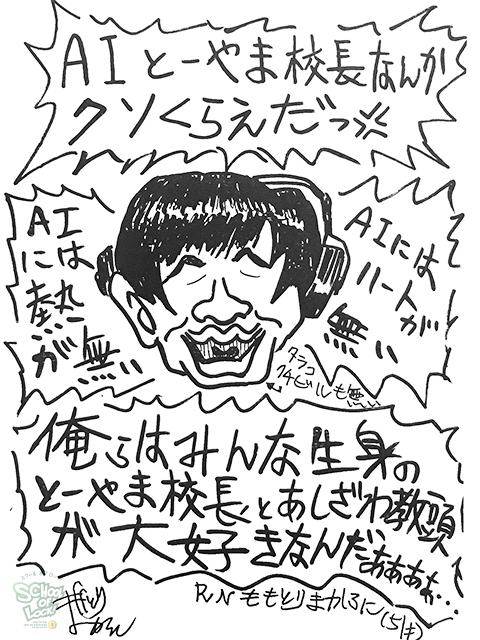 AIとーやま校長なんか
クソくらえだっ
AIは
に熱
が無い
AIには
ハートが
無い
タラコ
クチビルも無い
俺らはみんな生身の
とーやま校長とあしざわ教頭
が大好きなんだぁぁぁぉ…
RN ももとりまかろに(5才)
SCHOOL
OF
LOCK!